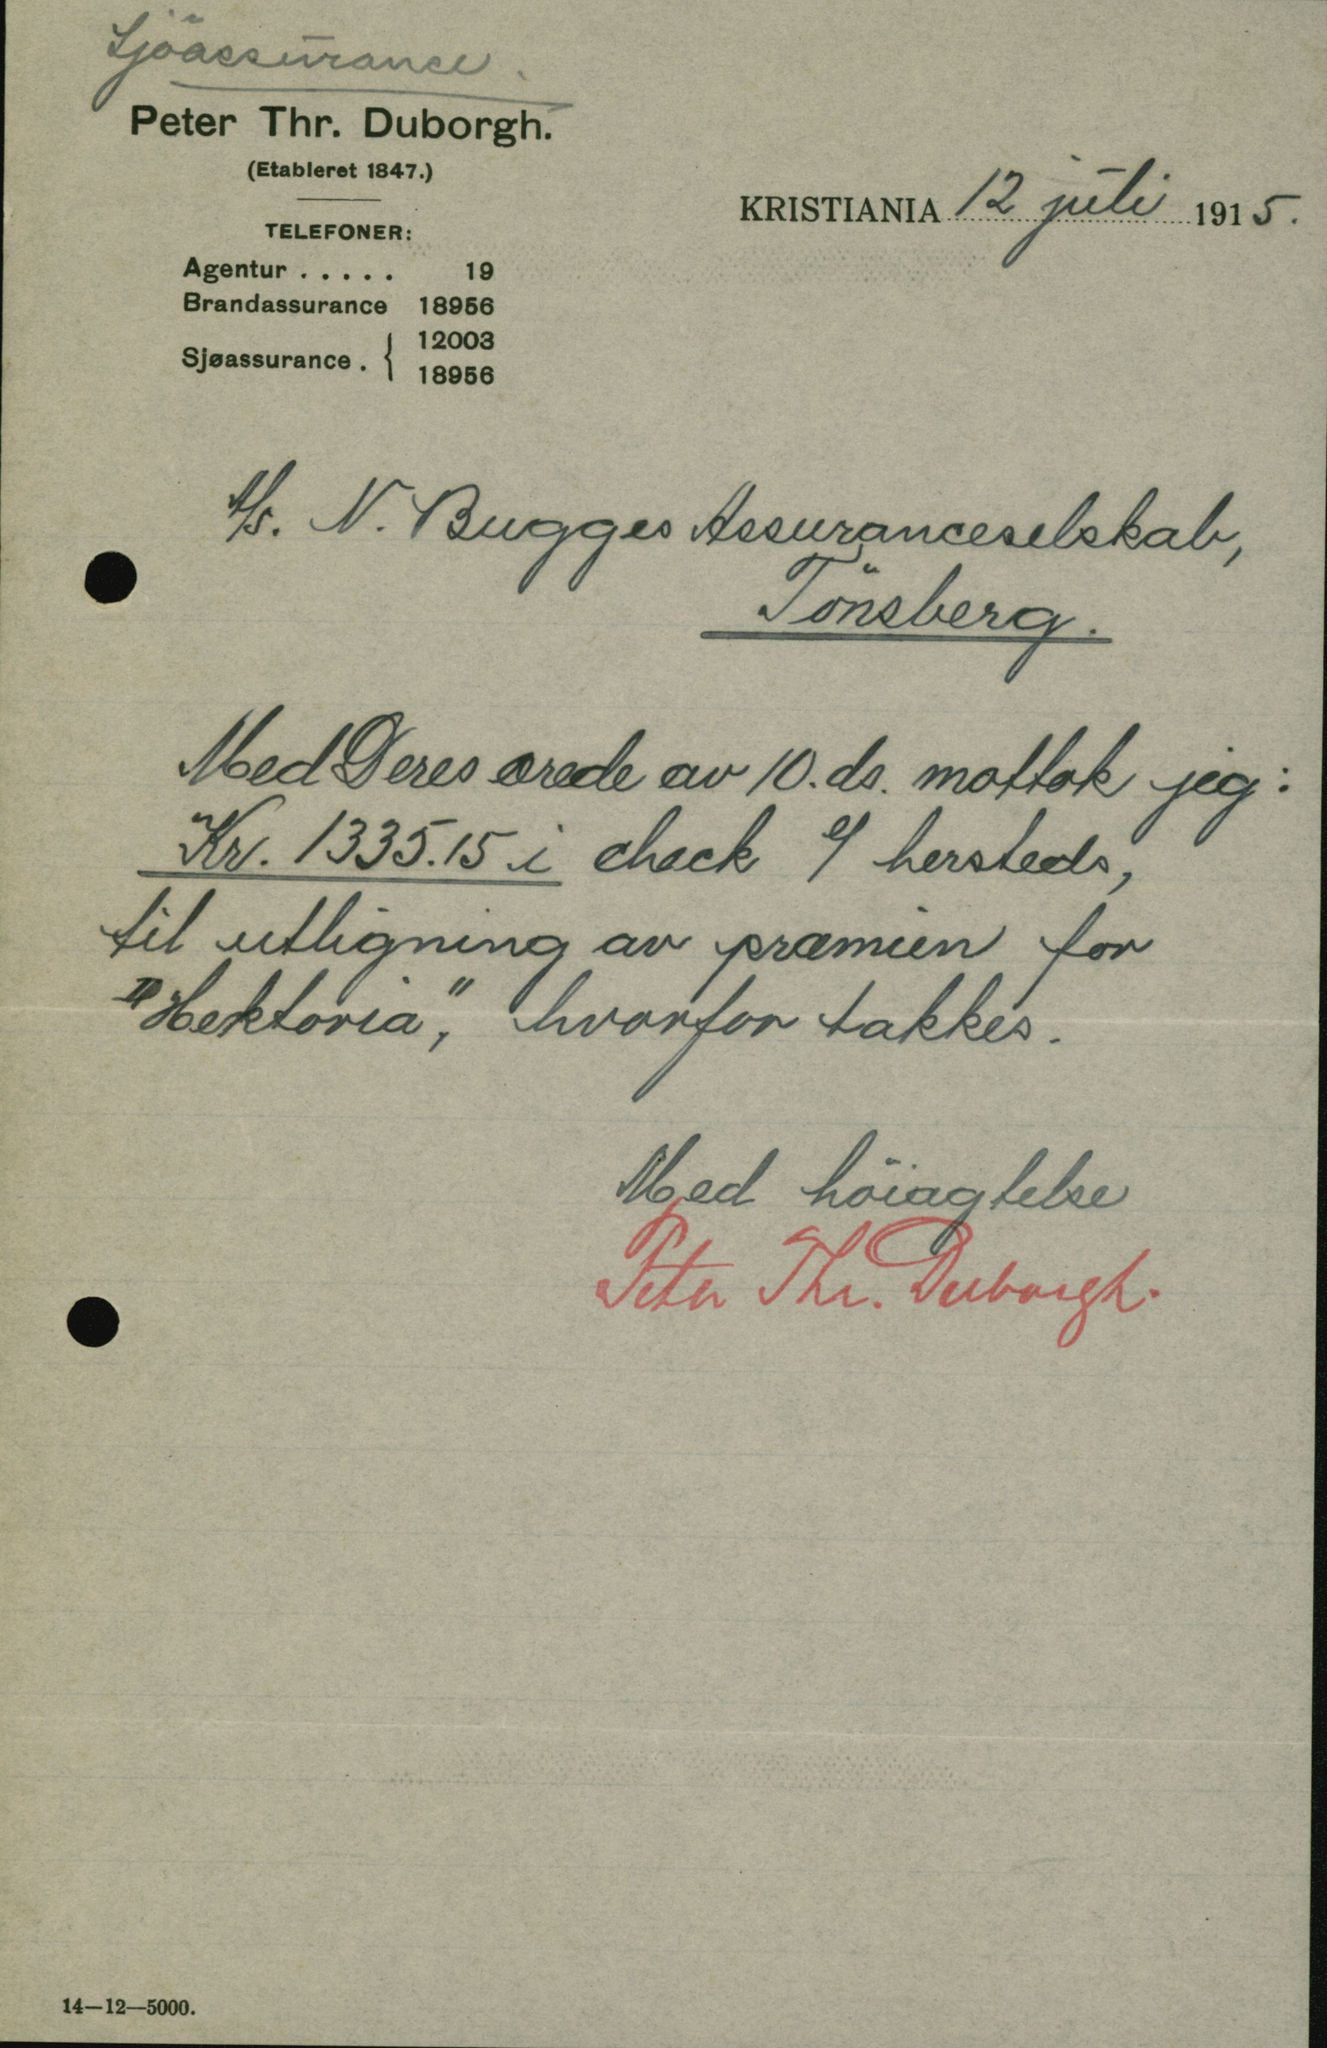 Sjöassurance.
Peter Thr. Duborgh.
(Etableret 1847.)
KRISTIANIA 12 juli 1915.
TELEFONER:
Agentur . . . . . 19
Brandassurance 18956
Sjøassurance . { 12003
18956
A/s. N. Bugges Assuranceselskab,
Tönsberg.
Med Deres ærede av 10. ds. mottok jeg:
Kr. 1335.15 i check e/ hersteds,
til utligning av præmien for
"Hektoria", hvorfor takkes.
Med höiagtelse
Peter Thr. Duborgh.
14—12—5000.